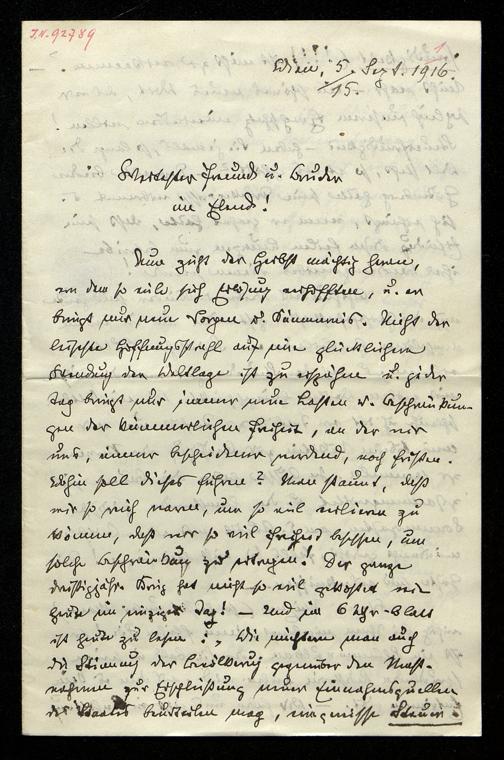 I.N. 92789
1
Wien, 5. Sept. 1916.
15.
Wertester Freund u. Bruder
im Elend!
Nun zieht der Herbst mächtig heran,
von dem so viele sich Erlösung erhofften, u. er
bringt nur neue Sorgen u. Kümmernis. Nicht der
leiseste Hoffnungsstrahl auf eine glücklichere
Wendung der Weltlage ist zu erspähen u. jeder
Tag bringt nur immer neue Lasten u. Beschränkun-
gen der kümmerlichen Freiheit, in der wir
uns, immer bescheidener werdend, noch fristen.
Wohin soll dieses führen? Man staunt, daß
wir so reich waren, um so viel verlieren zu
können, daß wir so viel Freiheit besessen, um
solche Beschränkung zu ertragen! Der ganze
dreißigjähr. Krieg hat nicht so viel gekostet wie
heute ein einziger Tag! – Und im 6 Uhr-Blatt
ist heute zu lesen: „Wie nüchtern man auch
die Stimmung der Bevölkerung gegenüber den Maß-
nahmen zur Erschließung neuer Einnahmsquellen
des Staates beurteilen mag, eine gewisse Steuer-